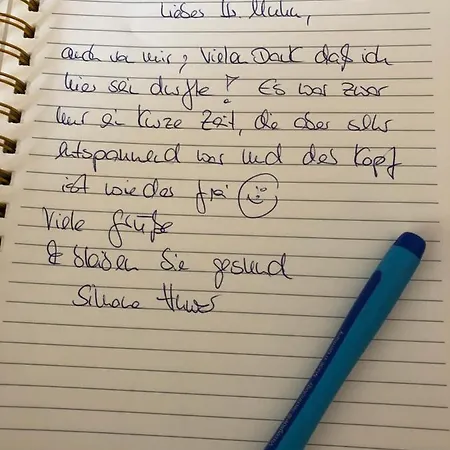 auch von mir, Vielen Dank daß ich
hier sein durfte! Es war zwar
nur ein kurze Zeit, die aber sehr
entspannend war und der Kopf
ist wieder frei
Viele Grüße
& bleiben Sie gesund